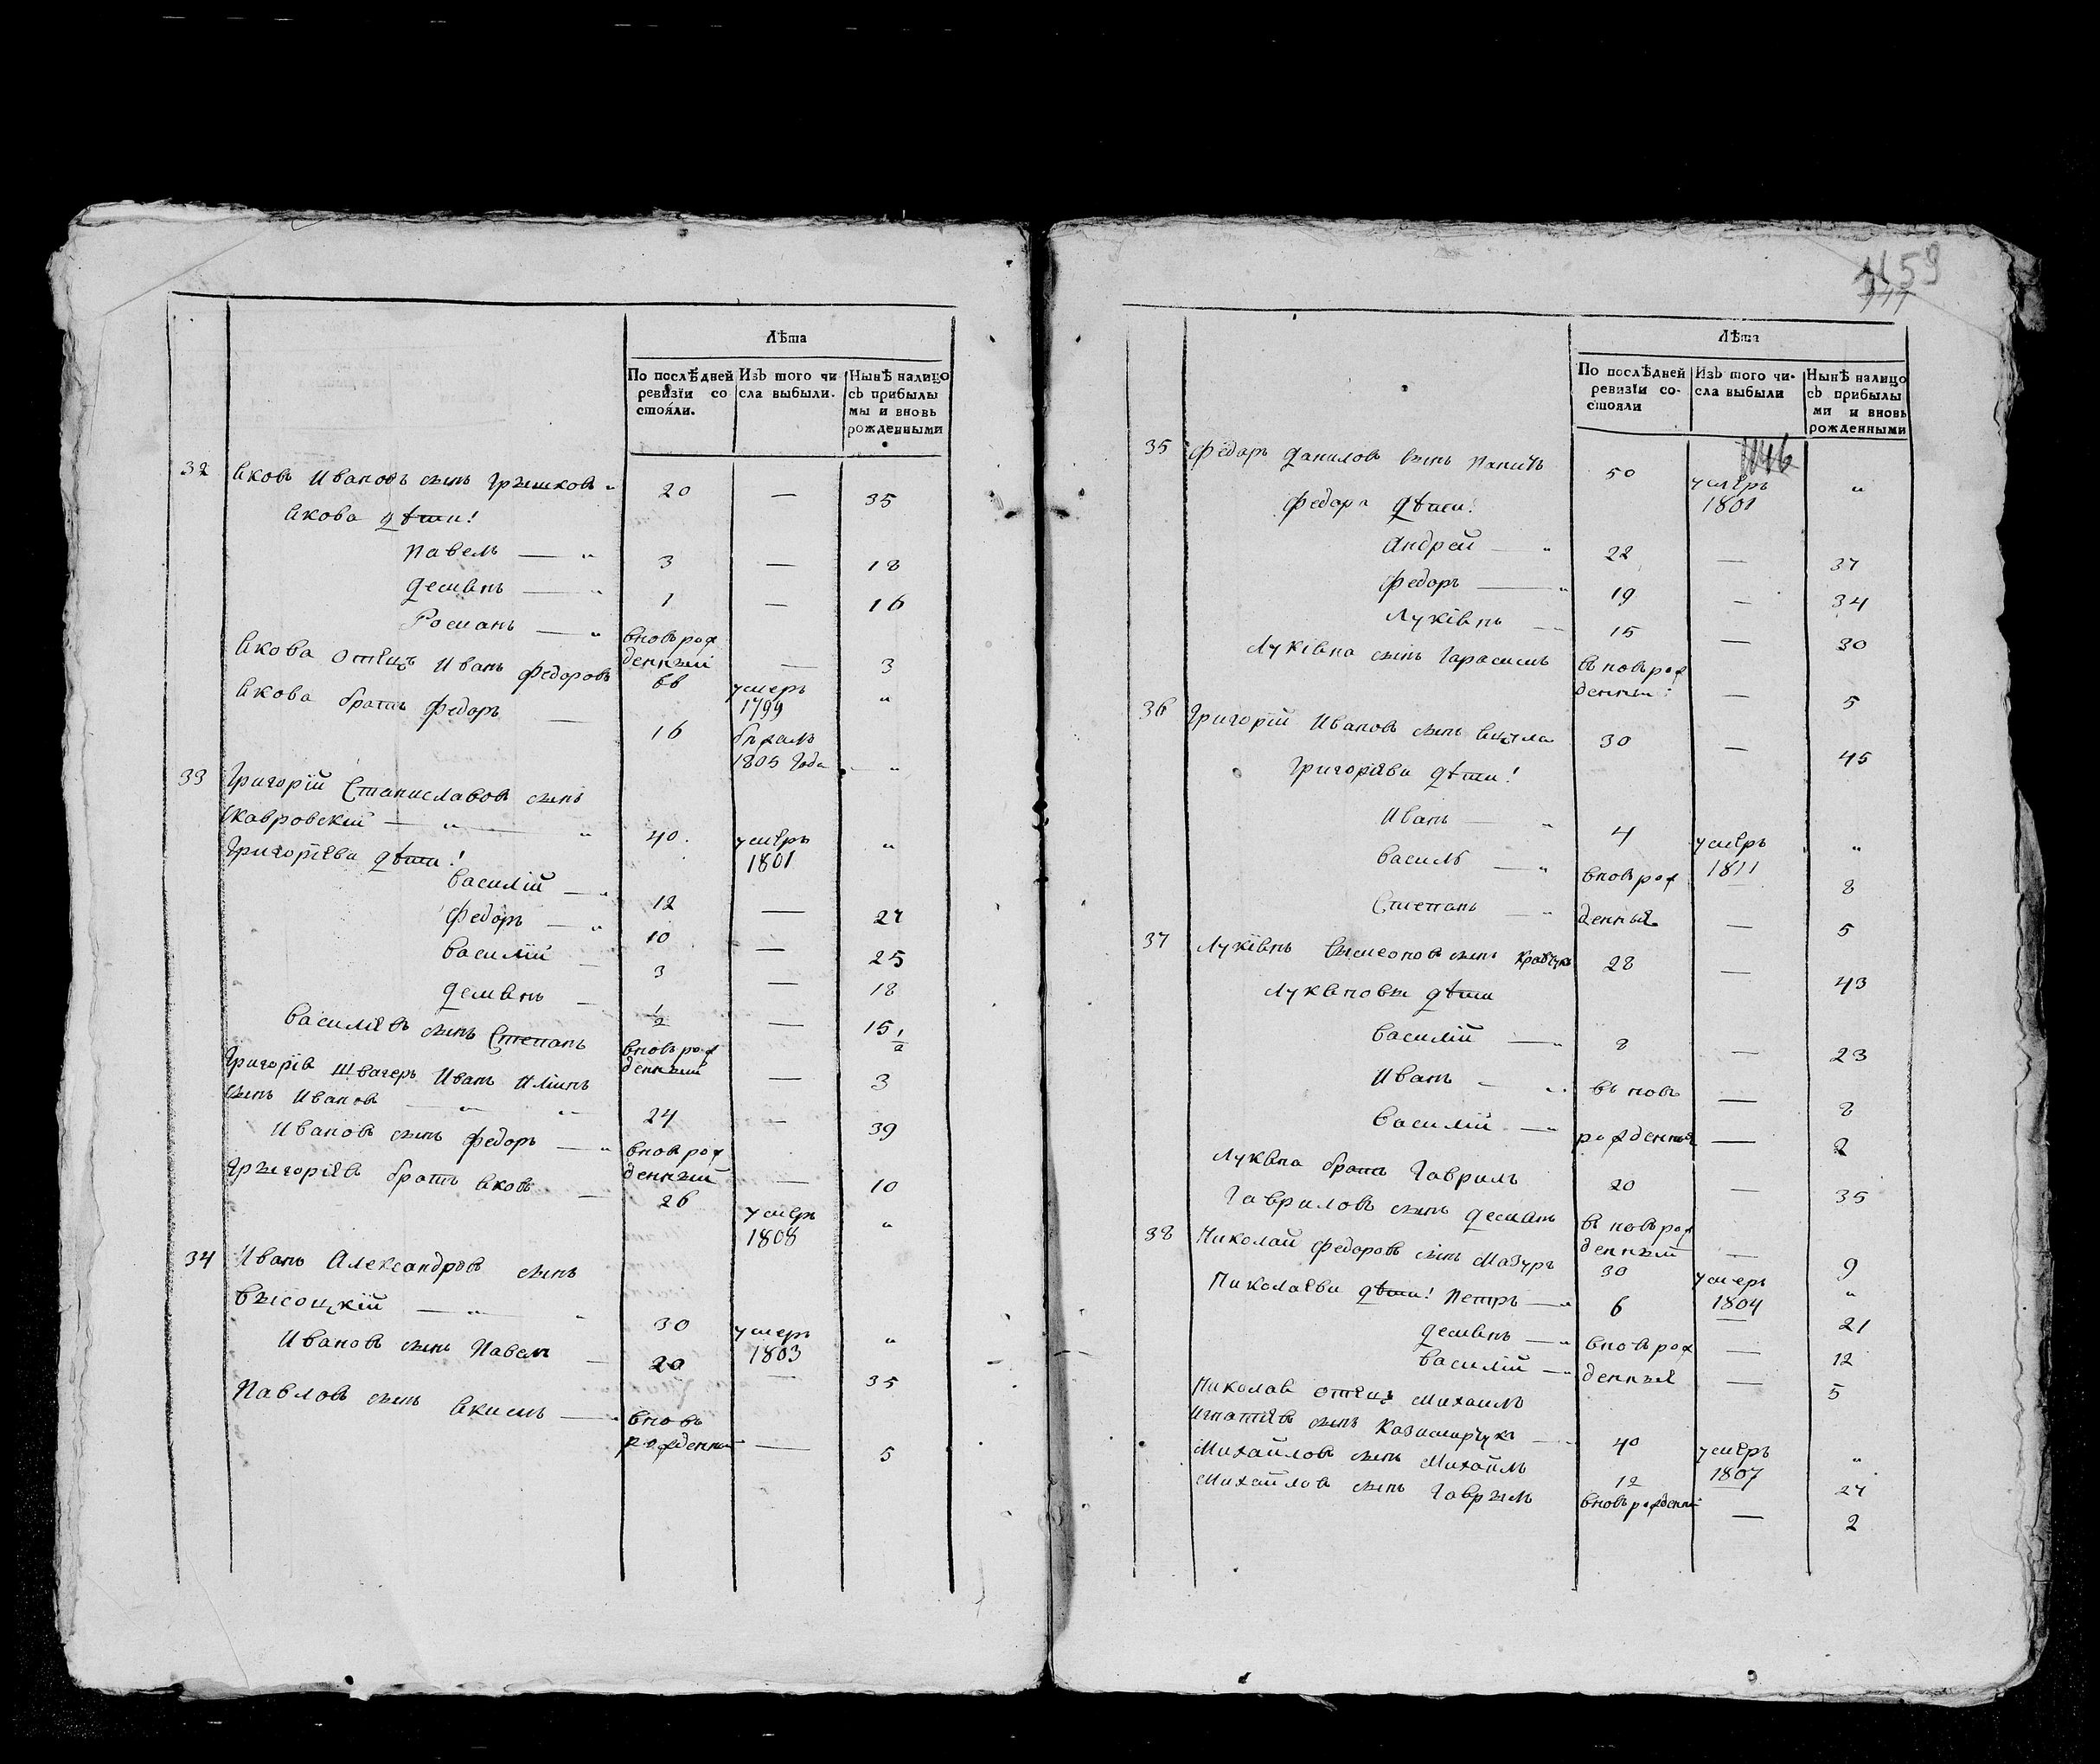 Лѣта
По послѣдней ревизїи со стояли.
Изъ того чи сла выбыли.
Нынѣ налицо съ прибылы ми и вновь рожденными
32 Яковъ Ивановъ сынъ Грышковъ 20 — 35
Якова дѣти!
Павелъ — 3 — 18
Демянъ — 1 — 16
Романъ — вновь рожденный — 3
Якова отецъ Иванъ Федоровъ 66 умеръ 1799 „
Якова братъ Федоръ — 16 бѣжалъ 1805 года „
33 Григорїй Станиславовъ сынъ
Скавровскїй — 40 умеръ 1801 „
Григорїева дѣти!
Василїй — 12 — 27
Федоръ — 10 — 25
Василїй — 3 — 18
Демянъ — 1/2 — 15 1/2
Василїевъ сынъ Степанъ вновь рожденный — 3
Григорїя швагеръ Иванъ
сынъ Ивановъ — 24 — 39
Ивановъ сынъ Федоръ — вновь рожденный — 10
Грыгорїевъ братъ Яковъ — 26 умеръ 1808 „
34 Иванъ Александровъ сынъ
Высоцкїй — 30 умеръ 1803 „
Ивановъ сынъ Павелъ — 20 — 35
Павловъ сынъ Якимъ — вновь рожденный — 5
59
Лѣта
По послѣдней ревизїи со стояли
Изъ того чи сла выбыли
Нынѣ налицо съ прибылы ми и вновь рожденными
35 Федоръ Даниловъ сынъ 50 умеръ 1801 „
Федора дѣти!
Андрей — 22 — 37
Федоръ — 19 — 34
Лукїянъ — 15 — 30
Лукїяна сынъ Гарасимъ вновь рожденный — 5
36 Григорїй Ивановъ сынъ 30 — 45
Григорїева дѣти!
Иванъ — 4 умеръ 1811 „
Василь — вновь рож — 8
Степанъ — денные — 5
37 Лукїянъ Сымеоновъ сынъ Кравчукъ 28 — 43
Лукяновы дѣти
Василїй — 8 — 23
Иванъ — вновь — 8
Василїй — рожденные — 2
Лукяна братъ Гаврилъ 20 — 35
Гавриловъ сынъ Демянъ вновь рожденный — 9
38 Николай Федоровъ сынъ Мазуръ 30 умеръ 1804 „
Николаева дѣти! Петръ — 6 — 21
Демянъ — вновь рож — 12
Василїй — денные — 5
Николая отецъ Михаилъ
Игнатїевъ сынъ Казимирчукъ — 40 умеръ 1807 „
Михайловъ сынъ Михаилъ 12 — 27
Михайловъ сынъ Гаврылъ вновь рожденный — 2